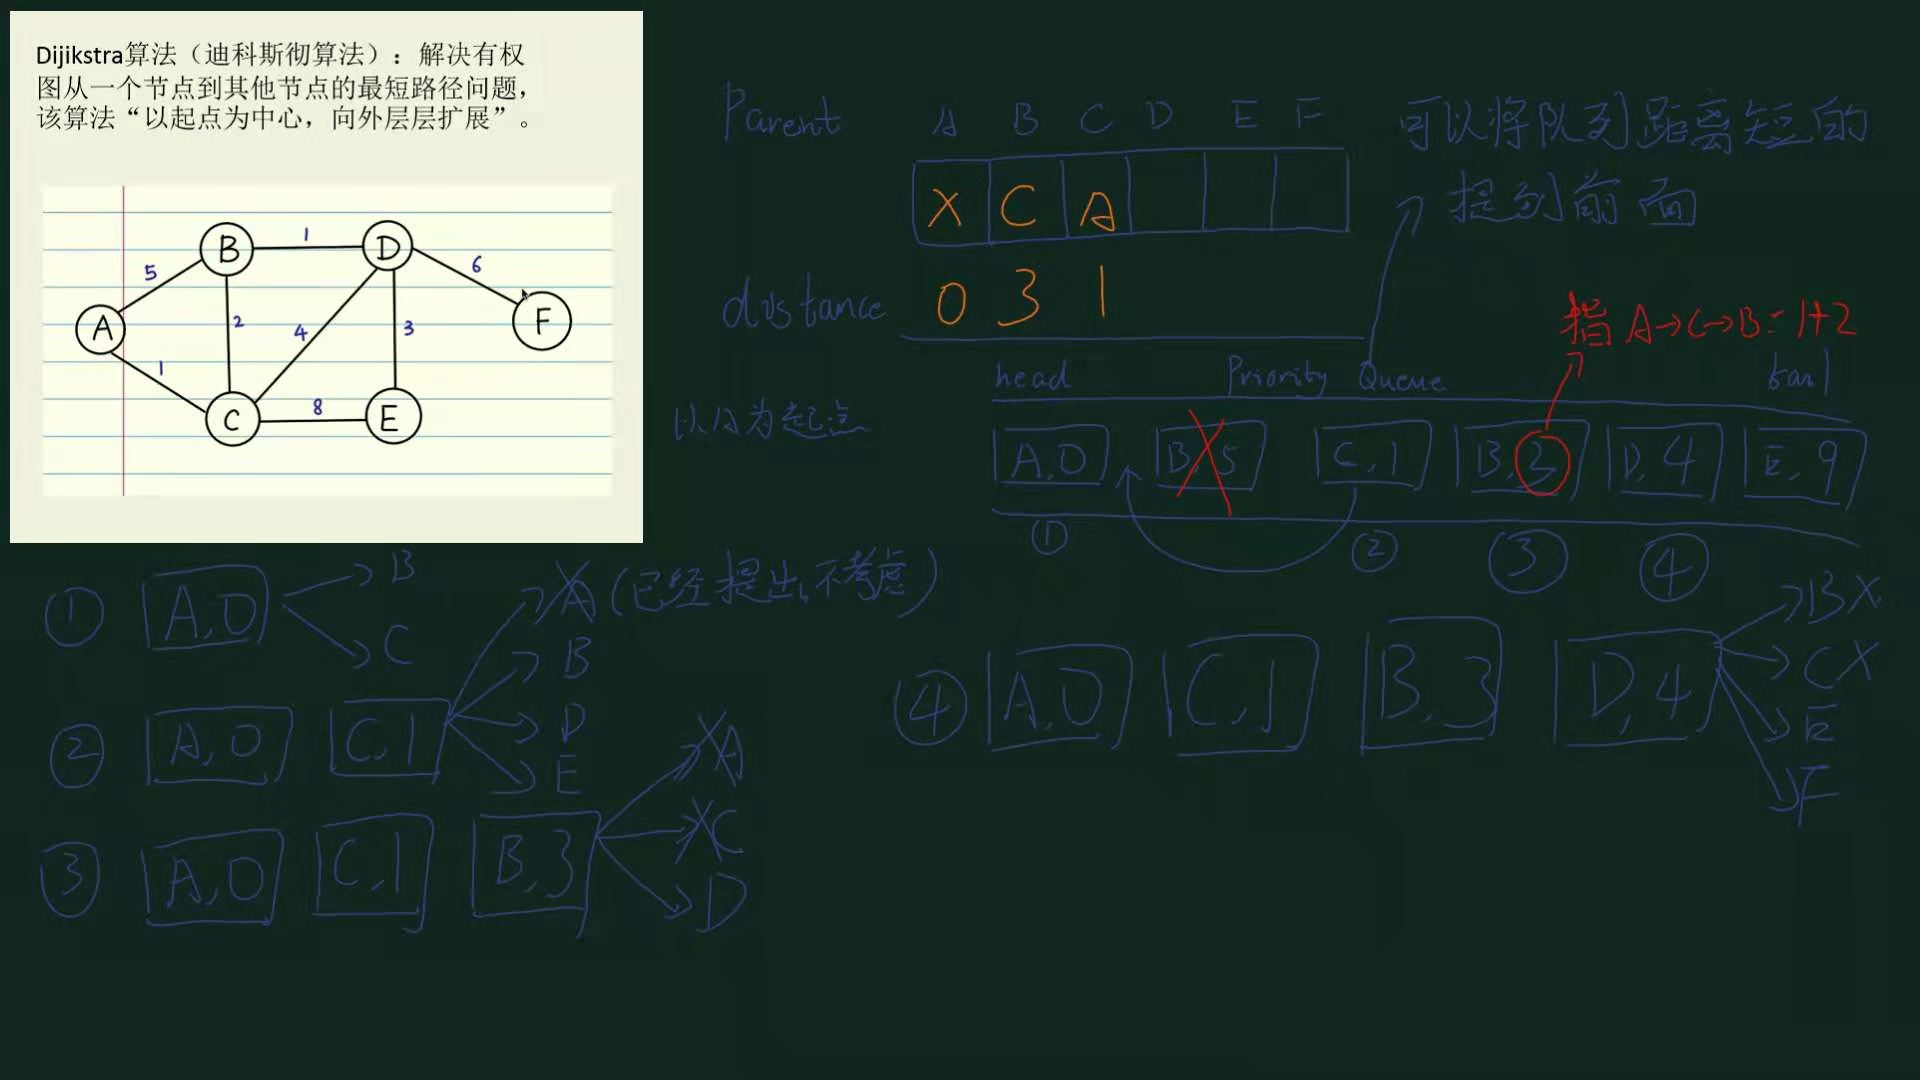 Dijikstra算法（迪科斯彻算法）：解决有权
图从一个节点到其他节点的最短路径问题，
该算法“以起点为中心，向外层层扩展”。
B 1 D
5 6
A 2 4 3 F
1
C 8 E
Parent A B C D E F
X C A
可以将队列距离短的
提到前面
distance 0 3 1
指 A→C→B=1+2
head Priority Queue tail
以A为起点
A,0 B,5 C,1 B,3 D,4 E,9
① ② ③ ④
① A,0 B
C
② A,0 C,1 A (已经提出,不考虑)
B
D
E
③ A,0 C,1 B,3 XA
XC
D
④ A,0 C,1 B,3 D,4 BX
CX
E
F